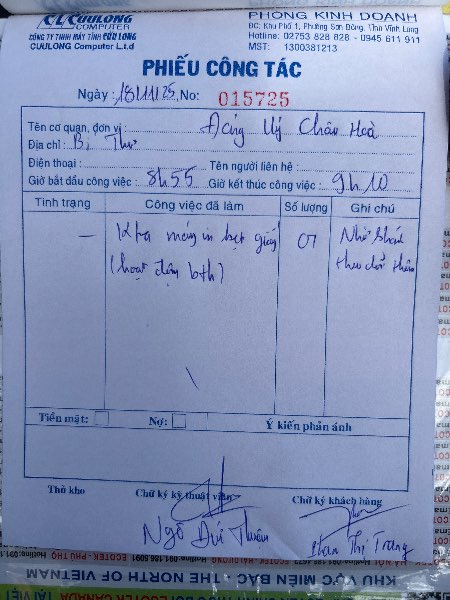 CL CUULONG
COMPUTER
CÔNG TY TNHH MÁY TÍNH CỬU LONG
CUULONG Computer L.t.d
PHÒNG KINH DOANH
ĐC: Khu Phố 1, Phường Sơn Đông, Tỉnh Vĩnh Long
Hotline: 02753 828 828 - 0945 611 911
MST: 1300381213
PHIẾU CÔNG TÁC
Ngày: 18/11/25 No: 015725
Tên cơ quan, đơn vị: Đảng Uỷ Châu Hoà
Địa chỉ: Bí Thư
Điện thoại: Tên người liên hệ:
Giờ bắt đầu công việc: 8h55 Giờ kết thúc công việc: 9h10
Tình trạng Công việc đã làm Số lượng Ghi chú
- Ktra máy in kẹt giấy 01 Nhờ khách
(hoạt động bth) theo dõi thêm
Tiền mặt: Nợ: Ý kiến phản ánh
Thủ kho Chữ ký kỹ thuật viên Chữ ký khách hàng
Ngô Đức Thiện Phan Thị Trang
KHU VỰC MIỀN BẮC - THE NORTH OF VIETNAM